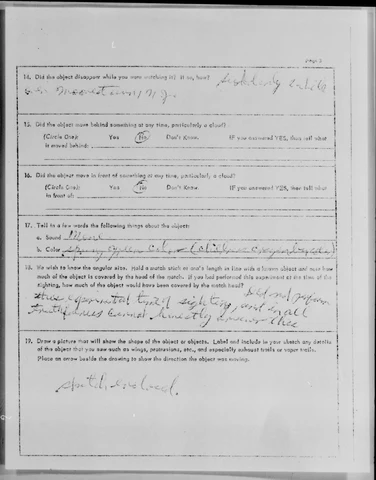 Page 3
14. Did the object disappear while you were watching it? If so, how? Suddenly while
over Moorestown, N.J.
15. Did the object move behind something at any time, particularly a cloud?
(Circle One): Yes No Don't Know. IF you answered YES, then tell what
it moved behind:
16. Did the object move in front of something at any time, particularly a cloud?
(Circle One): Yes No Don't Know. IF you answered YES, then tell what
in front of:
17. Tell in a few words the following things about the object:
a. Sound None
b. Color green
18. We wish to know the angular size. Hold a match stick at arm's length in line with a known object and note how
much of the object is covered by the head of the match. If you had performed this experiment at the time of the
sighting, how much of the object would have been covered by the match head? Did not perform
this experiment time of sighting, and in all
truthfulness cannot honestly answer this
19. Draw a picture that will show the shape of the object or objects. Label and include in your sketch any details
of the object that you saw such as wings, protrusions, etc., and especially exhaust trails or vapor trails.
Place an arrow beside the drawing to show the direction the object was moving.
Sketch enclosed.